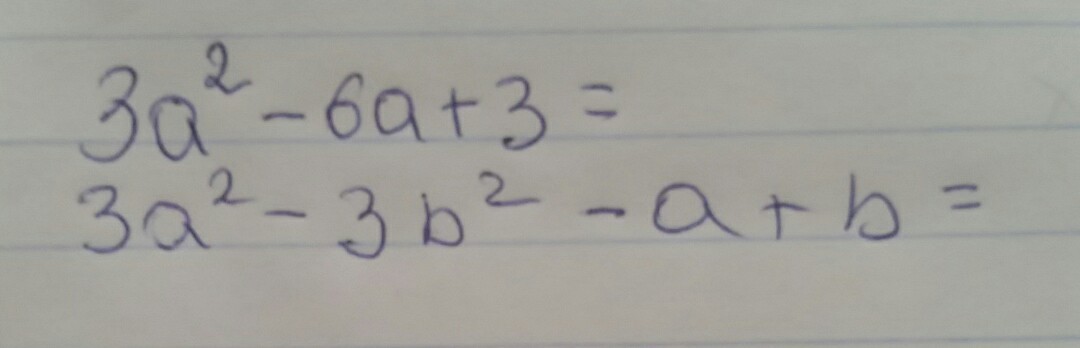 3a² - 6a + 3 =
3a² - 3b² - a + b =